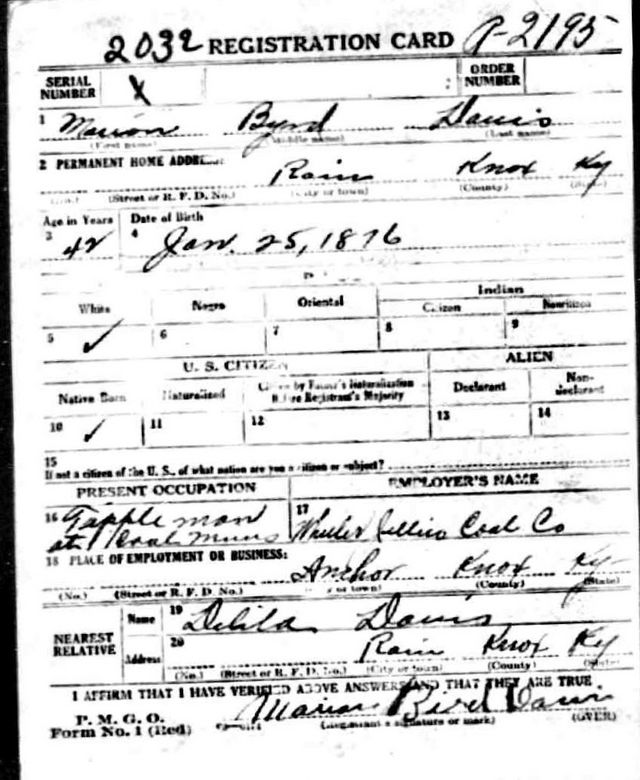 2032 REGISTRATION CARD A-2195
SERIAL NUMBER X ORDER NUMBER
1 Marion Byrd Davis
(First name) (Middle name) (Last name)
2 PERMANENT HOME ADDRESS: Rain Knox Ky
(No.) (Street or R. F. D. No.) (City or town) (County) (State)
Age in Years Date of Birth
3 42 4 Jan. 25, 1876
White Negro Oriental Indian
Citizen Noncitizen
5 ✓ 6 7 8 9
U. S. CITIZEN ALIEN
Native Born Naturalized Citizen by Father's Naturalization Before Registrant's Majority Declarant Non-declarant
10 ✓ 11 12 13 14
15
If not a citizen of the U. S., of what nation are you a citizen or subject?
PRESENT OCCUPATION EMPLOYER'S NAME
16 Tapple man 17
at Coal Mines Wheeler Jellico Coal Co
18 PLACE OF EMPLOYMENT OR BUSINESS:
Anchor Knox Ky
(No.) (Street or R. F. D. No.) (City or town) (County) (State)
NEAREST RELATIVE Name 19 Delila Davis
Address 20 Rain Knox Ky
(No.) (Street or R. F. D. No.) (City or town) (County) (State)
I AFFIRM THAT I HAVE VERIFIED ABOVE ANSWERS AND THAT THEY ARE TRUE
P. M. G. O.
Form No. 1 (Red) Marion Bird Davis
(Registrant's signature or mark) (OVER)